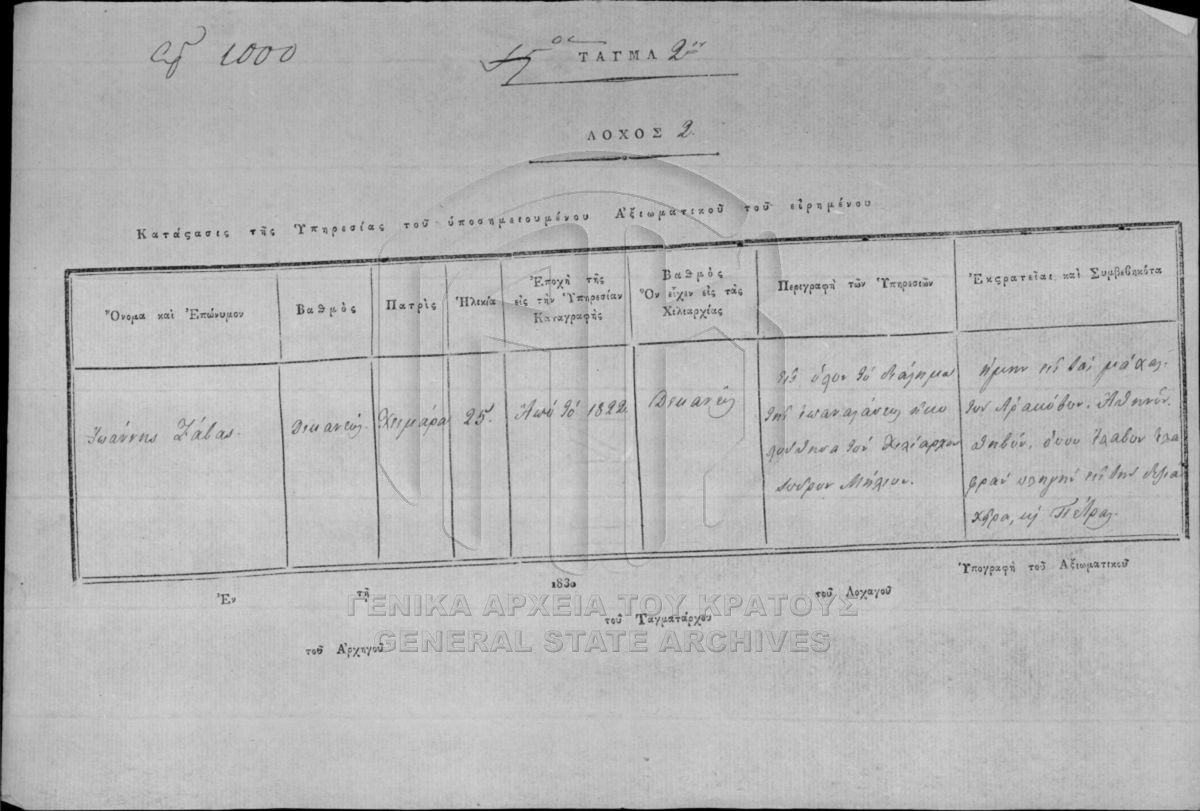 1000
ΤΑΓΜΑ 2ον
ΛΟΧΟΣ 2.
Κατάϛασις τῆς Ὑπηρεσίας τοῦ ὑποσημειουμένου Ἀξιωματικοῦ τοῦ εἰρημένου
Ὄνομα καὶ Ἐπώνυμον
Βαθμὸς
Πατρὶς
Ἡλικία
Ἐποχὴ τῆς
εἰς τὴν Ὑπηρεσίαν
Καταγραφῆς
Βαθμὸς
Ὃν εἶχεν εἰς τὰς
Χιλιαρχίας
Περιγραφὴ τῶν Ὑπηρεσιῶν
Ἐκϛρατεῖαι, καὶ Συμβεβηκότα
Ἰωάννης Ζάβας.
Δεκανεύς.
Χειμάρα
25.
Ἀπό τό 1822.
Δεκανεύς
εἰς ὅλον τό διάϛημα
τῆς ἐπαναϛάσεως ἠκο
λούθησα τόν Χιλίαρχον
Σπῦρον Μήλιον.
ἤμην εἰς ταῖς μάχαις
τῶν Ἀράχοβον, Ἀθηνῶν,
Θηβῶν, ὅπου ἔλαβον ἐλα
φράν πληγήν εἰς τήν δεξιά
χεῖρα, καὶ Πέτρας.
Ἐν τῇ 1830
Ὑπογραφὴ τοῦ Ἀξιωματικοῦ
τοῦ Λοχαγοῦ
τοῦ Ταγματάρχου
τοῦ Ἀρχηγοῦ
ΓΕΝΙΚΑ ΑΡΧΕΙΑ ΤΟΥ ΚΡΑΤΟΥΣ
GENERAL STATE ARCHIVES